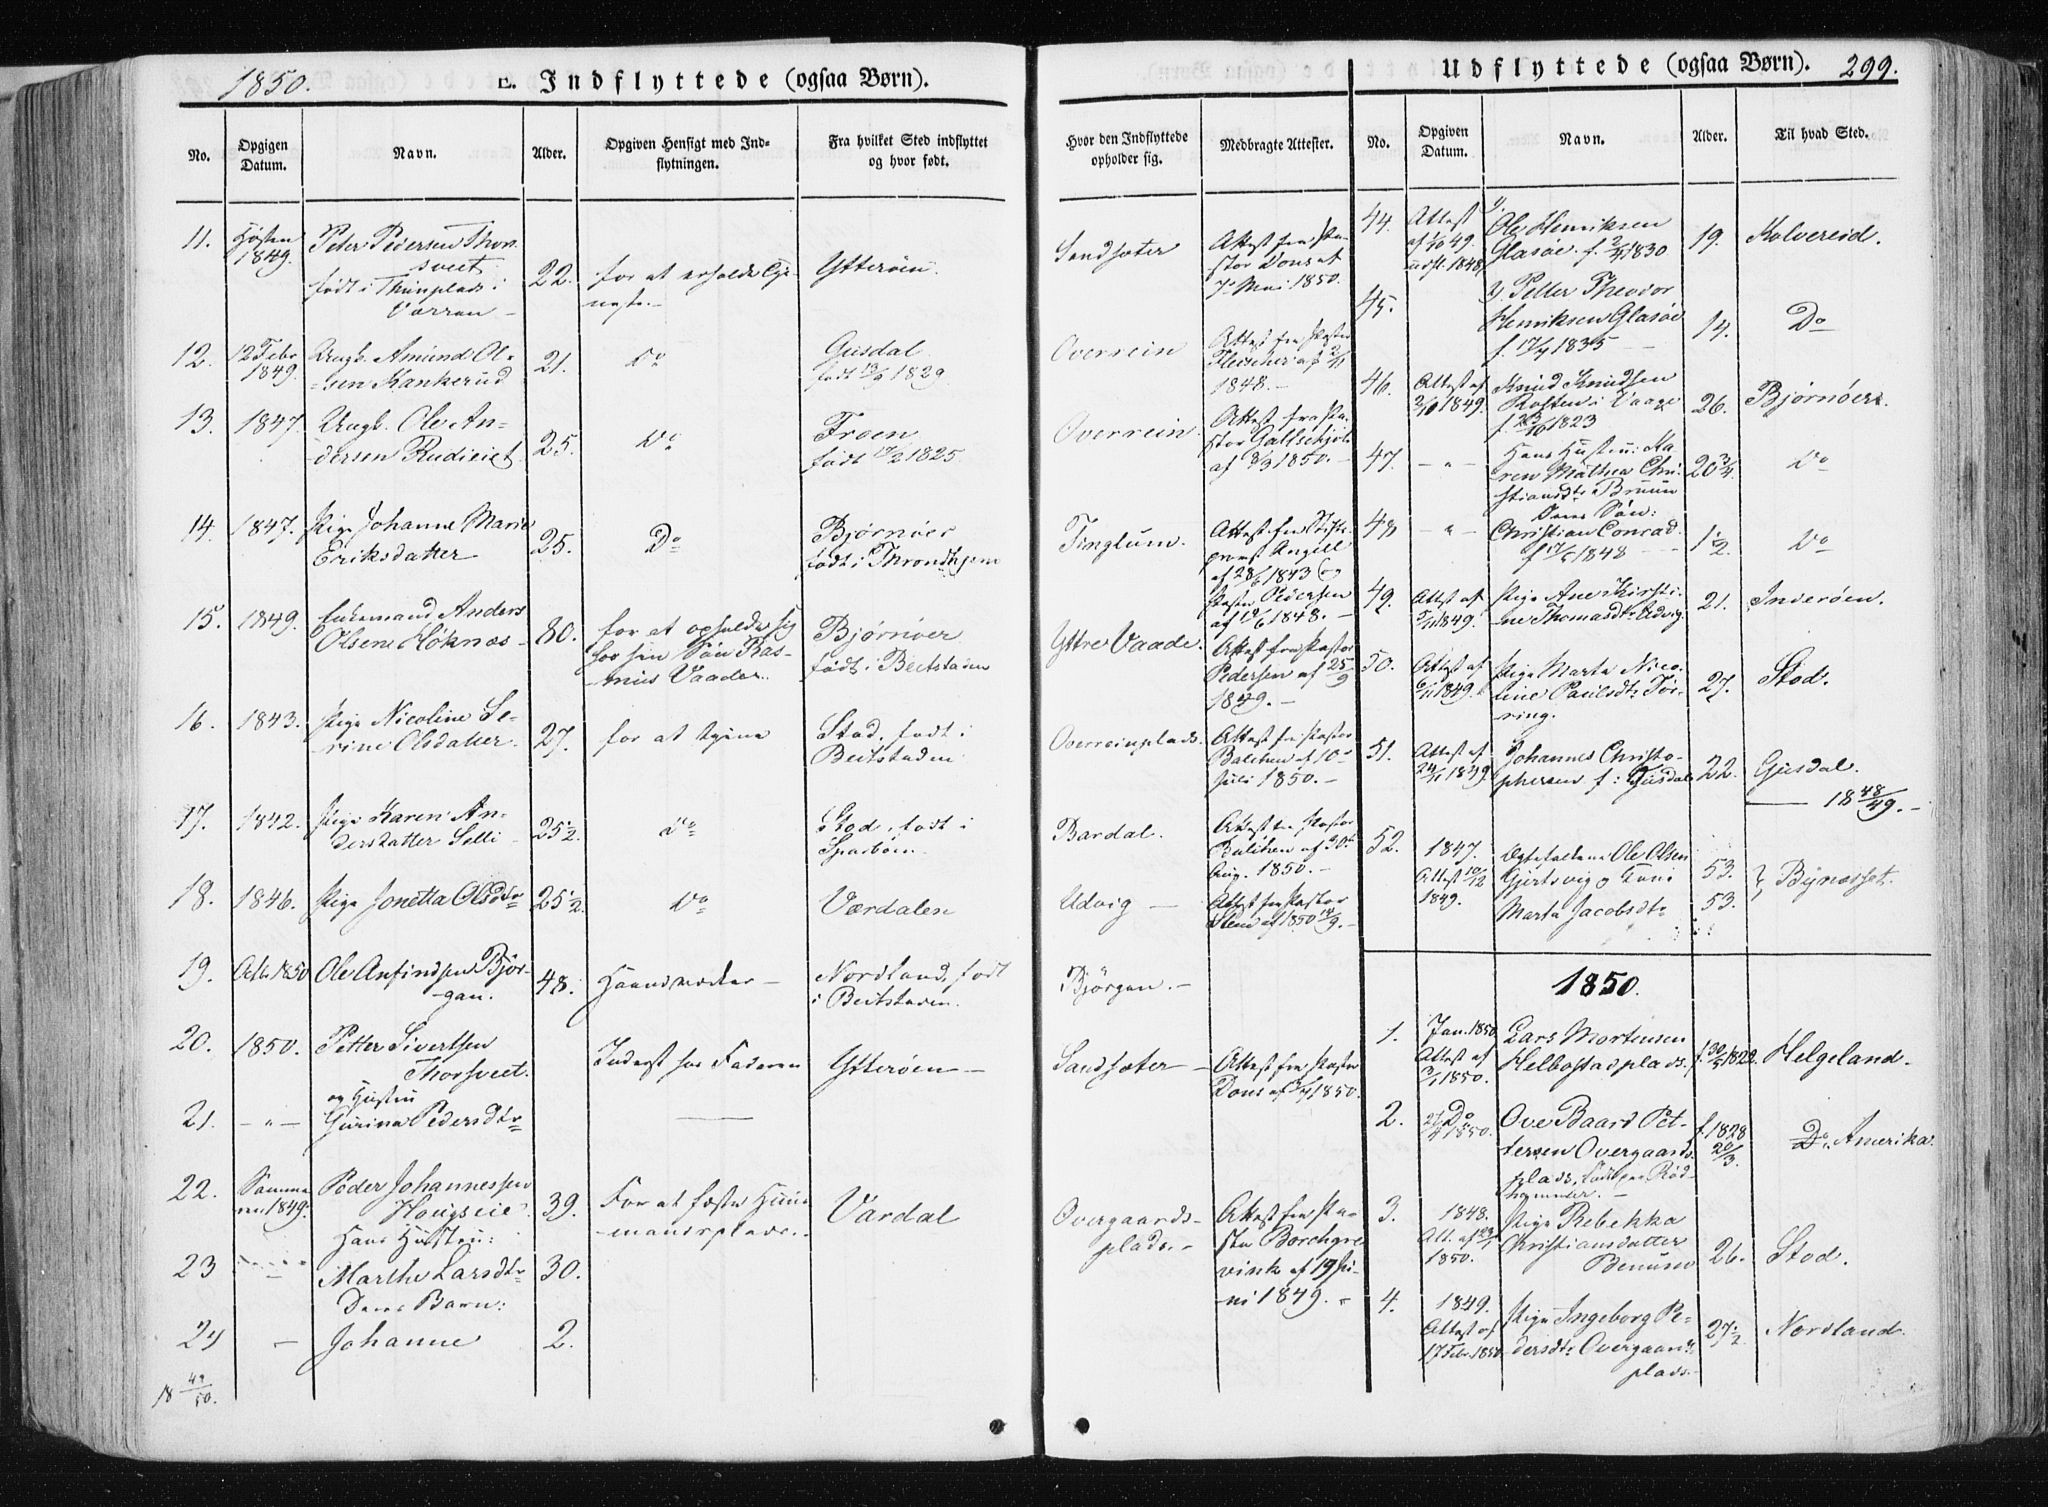 1850.
E. Indflyttede (ogsaa Børn).
No.
Opgigen Datum.
Navn.
Alder.
Opgiven Hensigt med Ind-
flytningen.
Fra hvilket Sted indflyttet
og hvor født.
Hvor den Indflyttede
opholder sig.
Medbragte Attester.
11. Høsten 1849. Peter Pedersen Thor-
svect
født i Thinplads i
Værran
22. for at erholde Tje-
neste.
Ytterøen.
Sandsæter
Attest fra Pa-
stor Dons af
7 Mai 1850.
12. 12 Febr 1849. Ungk. Amund Ol-
sen Kankerud
21. Do
Gusdal
født 13/6 1829.
Overrein
Attest fra Pastor
Fleischer af 2/11
1848.
13. 1847. Ungk. Ole An-
dersen Rudieiet
25. Do
Froen
født 17/2 1825
Overrein
Attest fra Pa-
stor
af 8/3 1850.
14. 1847. Pige Johanne Marie
Eriksdatter
25. Do
Bjørnøer
født i Throndhjem
Tinglum.
Attest fra Stifts-
prost Angell
af 28/6 1843 og
Pastor Pedersen
af 1848.
15. 1849. Enkemand Anders
Olsen Høknæs
80. for at opholde sig
hos sin Søn Ras-
mus Vaaden.
Bjørnøer
født i Beitstaden
Yttre Vaade.
Attest fra Pastor
Pedersen af 25/9
1849.
16. 1843. Pige Nicoline Se-
rine Olsdatter.
27. for at tjene
Stod, født i
Beitstaden
Overreinplads.
Attest fra Pastor
Balchen af 10
Juli 1850.
17. 1842. Pige Karen An-
dersdatter Selli
25 1/2. Do
Stod, født i
Sparboen.
Bardal.
Attest fra Pastor
Balchen af 30
Aug. 1850.
18. 1846. Pige Jonetta Olsdtr
25 1/2. Do
Værdalen
Udvig
Attest fra Pastor
af 1850
19. Octbr 1850 Ole Anfindsen Bjør-
gan.
48. Haandværker
Nordland, født
i Beitstaden.
Bjørgan.
20. 1850. Petter Sivertsen
Thorsveet.
Inderst hos Faderen
Ytterøen
Sandsæter
Attest fra Pastor
Dons af 1850.
21. og Hustru
Gurina Pedersdtr
22. Somme-
ren 1849. Peder Johannessen
Hougseie
39. For at fæste Huus-
mandsplads.
Vardal
Overgaards-
plads.
Attest fra Pa-
stor Borchgre-
vink af 19 Ju-
ni 1849.
Hans Hustru:
23 Marthe Larsdtr
30.
Deres Barn:
24 Johanne
2.
18 49/50.
Udflyttede (ogsaa Børn).
299.
No.
Opgiven
Datum.
Navn.
Alder.
Til hvad Sted.
44. Attest
af 1/10 49.
udfl. 1848
Ole Henriksen
Glasøe. f. 1830
19. Kolvereid.
45. Petter Theodor
Henriksen Glasøe
f. 17/4 1835
14. Do
46. Attest af
2/10 1849. Knud Knudsen
Rolten i Vaage
f. 1823
26. Bjørnøer.
47. Hans Hustru: Ka-
ren Mathea Chri-
stiansdtr Bruun
20 3/4. Do
48 Deres Søn:
Christian Conrad
f. 1848
1 1/2 Do
49. Attest af
1849. Pige Ane Kirsti-
ne Thomasdtr Udvig
21. Inderøen.
50. Attest af
6/11 1849. Pige Marta Nico-
line Paulsdtr Tø-
ring.
27. Stod.
51. Attest af
24/11 1849 Johannes Christo-
phersen f. i Gusdal
22. Gusdal.
18 48/49.
52. 1847.
Attest 10/12
1849. Ægtefolkene Ole Olsen
Gjertsvig og Kone
Marta Jacobsdtr
53.
53. Bynæsset.
1850.
1. Jan. 1850.
Attest af
1850. Lars Mortensen
Helbostadplads.
f. 30/5 1822. Helgeland.
2. Do
1850. Ove Baard Pet-
tersen Overgaards-
plads,
f. 1828
20/3. Do. Amerika.
3. 1848.
Att. af 23/1
1850. Pige Rebekka
Christiansdatter
Benum
26. Stod.
4. 1849.
Attest af
17 Febr. 1850 Pige Ingeborg Pe-
dersdtr Overgaards-
plads.
27 1/2 Nordland.